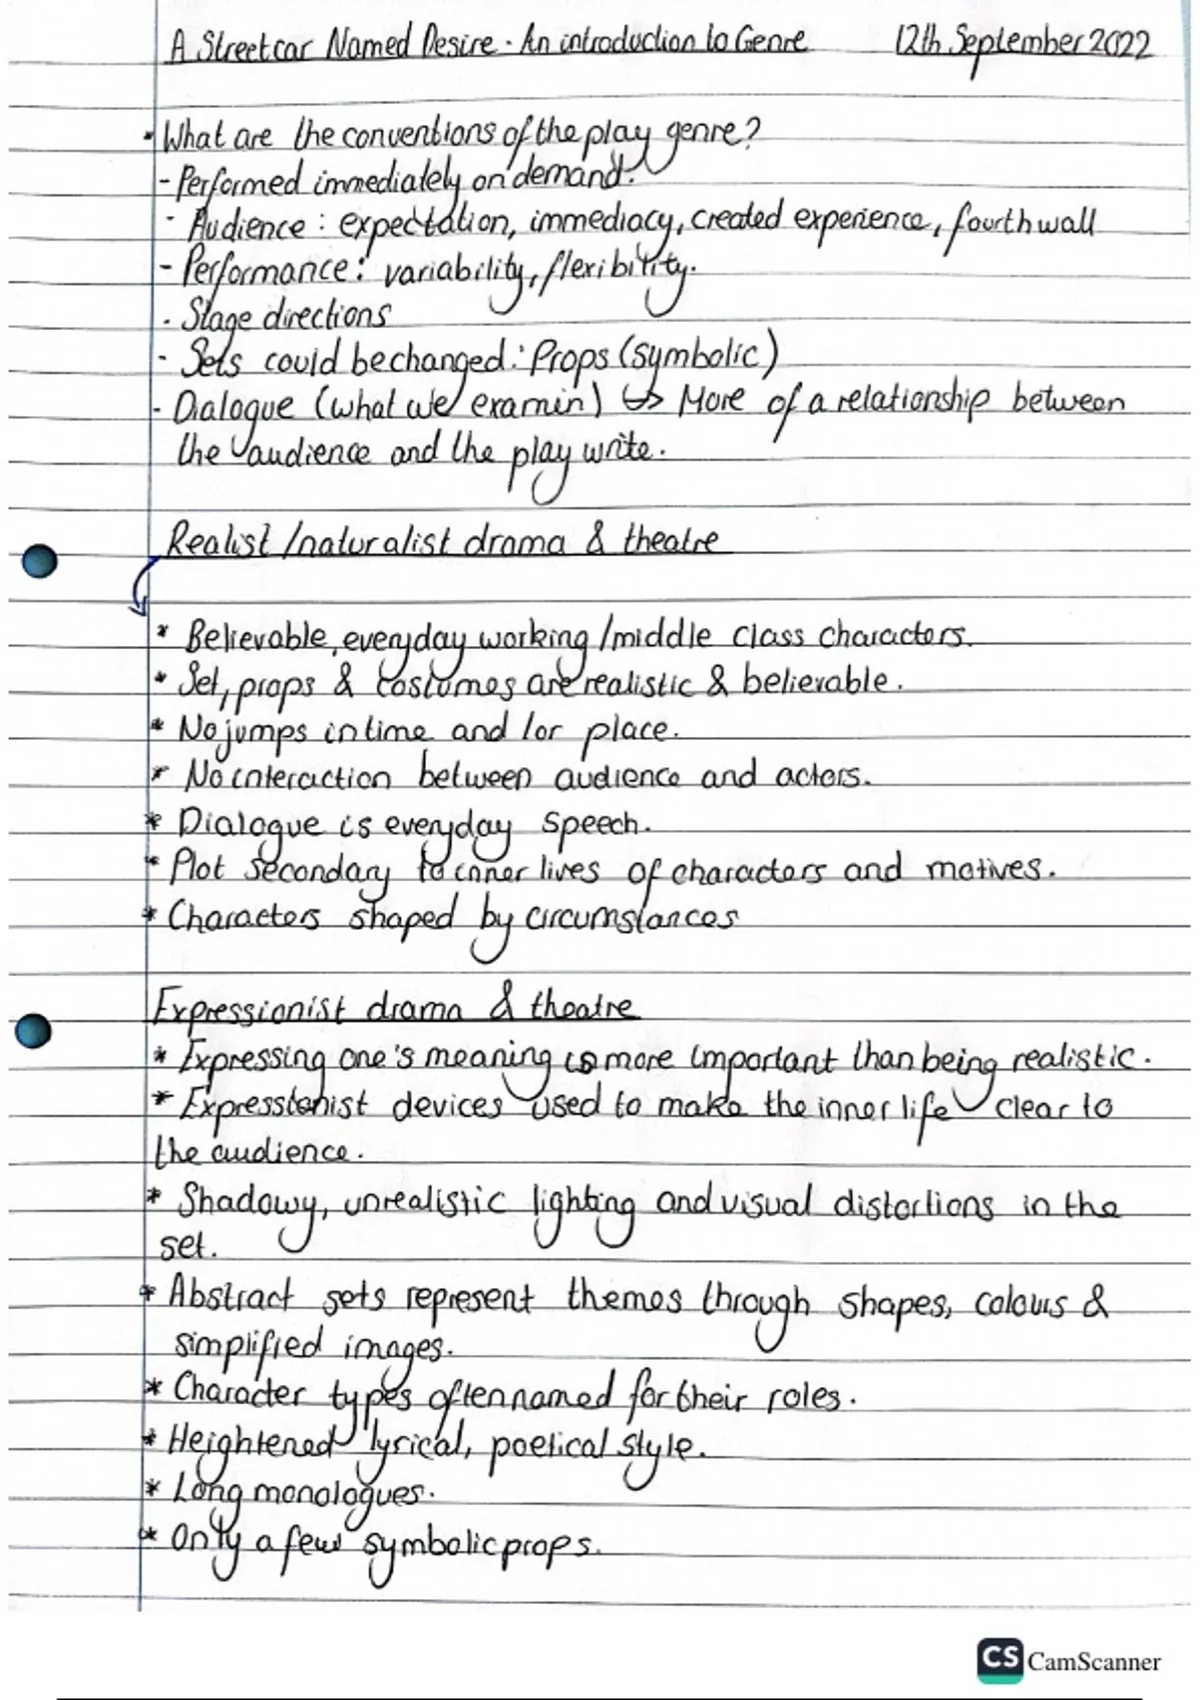 A Streetcar Named Desire - An introduction to Genre 12th September 2022
• What are the conventions of the play genre?
- Performed immediately on demand.
- Audience : expectation, immediacy, created experience, fourth wall
- Performance : variability, flexibility.
- Stage directions
- Sets could be changed : Props (symbolic)
- Dialogue (what we examin) ↳> More of a relationship between
the audience and the play write.
Realist / naturalist drama & theatre
* Believable, everyday working / middle class characters.
* Set, props & costumes are realistic & believable.
* No jumps in time and /or place.
* No interaction between audience and actors.
* Dialogue is everyday speech.
* Plot secondary to inner lives of characters and motives.
* Characters shaped by circumstances
Expressionist drama & theatre
* Expressing one's meaning is more important than being realistic.
* Expressionist devices used to make the inner life clear to
the audience.
* Shadowy, unrealistic lighting and visual distortions in the
set.
* Abstract sets represent themes through shapes, colours &
simplified images.
* Character types often named for their roles.
* Heightened lyrical, poetical style.
* Long monologues.
* Only a few symbolic props.
CS CamScanner